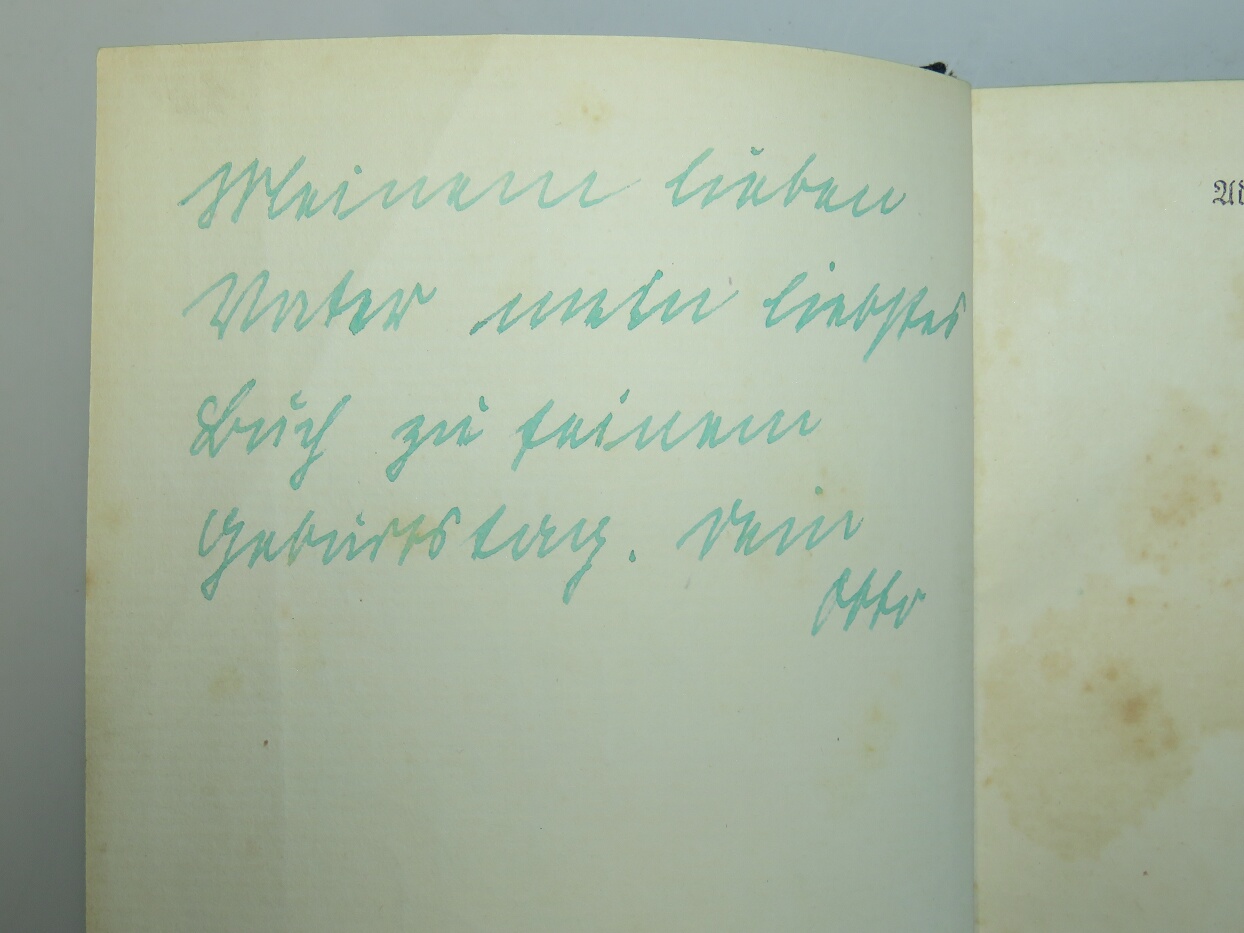 Meinem lieben
Vater mein liebstes
Buch zu seinem
Geburtstag. Dein
Otto